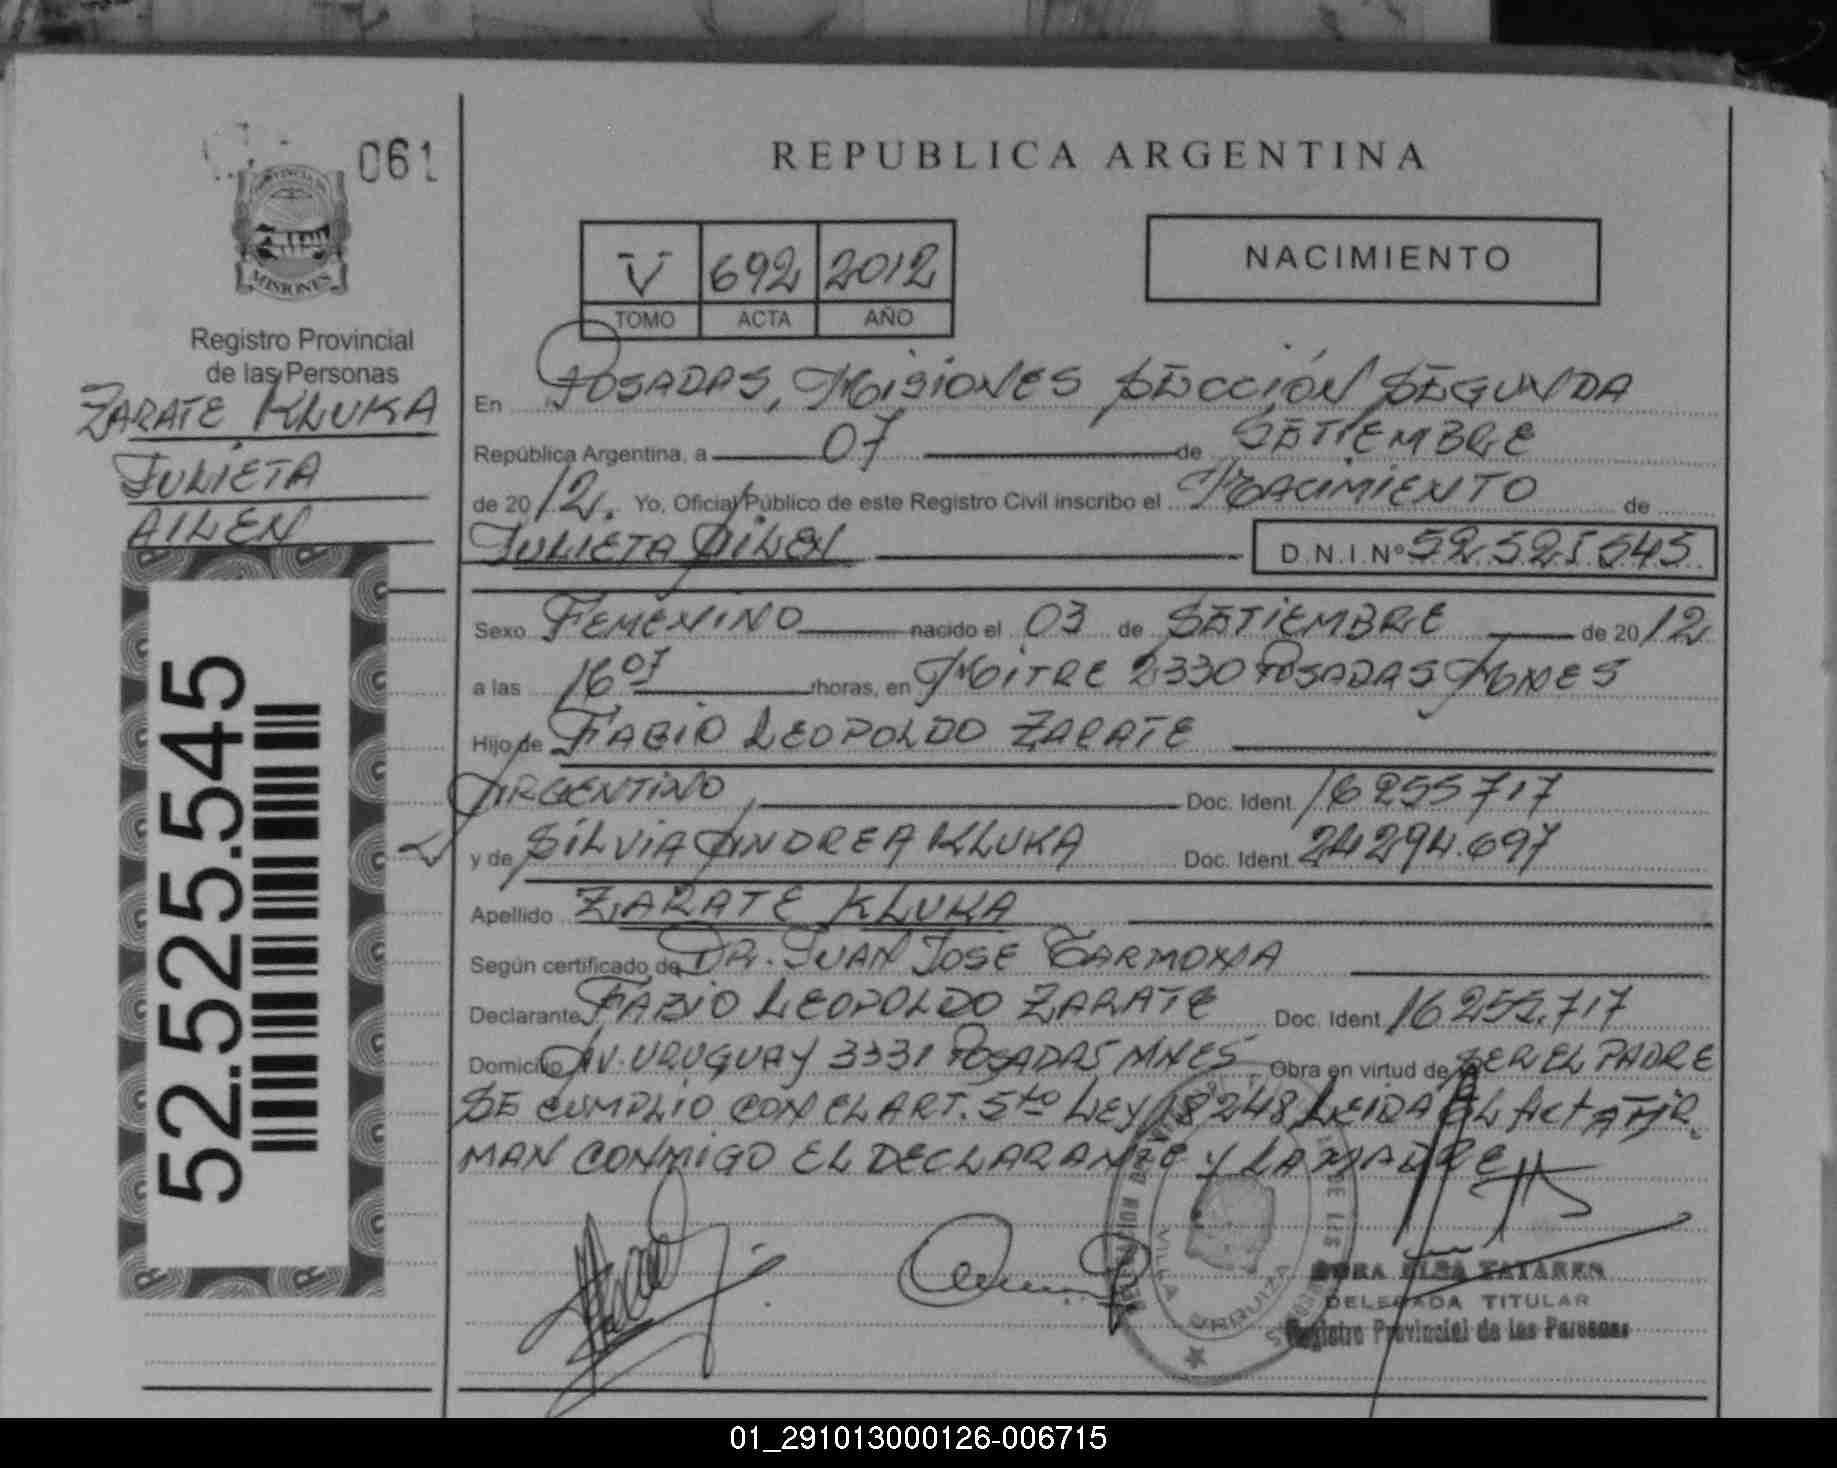 061
PROVINCIA DE
MISIONES
Registro Provincial
de las Personas
ZARATE KLUKA
JULIETA
AILEN
52.525.545
REPUBLICA ARGENTINA
V 692 2012
TOMO ACTA AÑO
NACIMIENTO
En POSADAS, MISIONES SECCIÓN SEGUNDA
República Argentina, a 07 de SETIEMBRE
de 2012. Yo, Oficial Público de este Registro Civil inscribo el NACIMIENTO de
JULIETA AILEN D.N.I.Nº 52.525.545
Sexo FEMENINO nacido el 03 de SETIEMBRE de 2012
a las 16 07 horas, en MITRE 2330 POSADAS MNES
Hijo de FABIO LEOPOLDO ZARATE
ARGENTINO, Doc. Ident. 16255717
y de SILVIA ANDREA KLUKA Doc. Ident. 24294.697
Apellido ZARATE KLUKA
Según certificado de DR. JUAN JOSE CARMONA
Declarante FABIO LEOPOLDO ZARATE Doc. Ident. 16255.717
Domicilio AV. URUGUAY 3331 POSADAS MNES Obra en virtud de SER EL PADRE
SE CUMPLIO CON EL ART. 5to LEY 18248 LEIDA EL ACTA FIR
MAN CONMIGO EL DECLARANTE Y LA MADRE
VILLA URQUIZA
ELSA TATAREN
DELEGADA TITULAR
Registro Provincial de las Personas
01_291013000126-006715